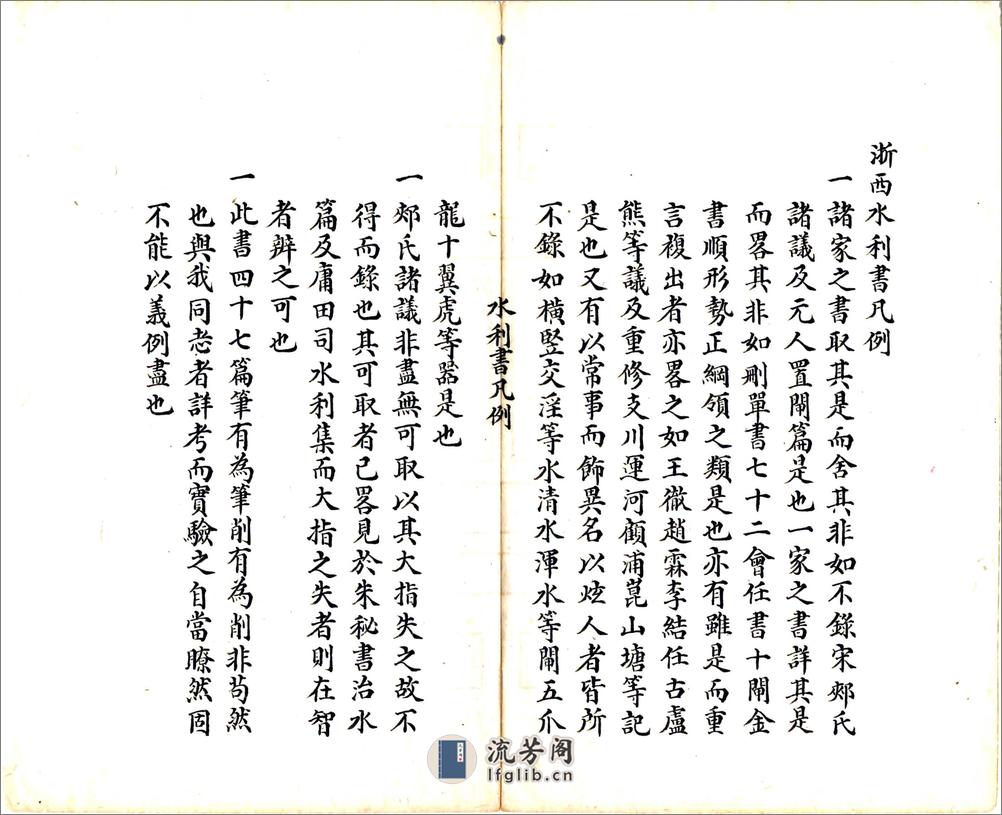 浙西水利書凡例
一諸家之書取其是而舍其非如不錄宋郟氏
諸議及元人置閘篇是也一家之書詳其是
而畧其非如刪單書七十二會任書十閘金
書順形勢正綱領之類是也亦有雖是而重
言複出者亦畧之如王徹趙霖李結任古盧
熊等議及重修支川運河顧浦崑山塘等記
是也又有以常事而飾異名以炫人者皆所
不錄如橫豎交淫等水清水渾水等閘五爪
水利書凡例
龍十翼虎等器是也
一郟氏諸議非盡無可取以其大指失之故不
得而錄也其可取者已畧見於朱秘書治水
篇及庸田司水利集而大指之失者則在智
者辨之可也
一此書四十七篇筆有為筆削有為削非苟然
也與我同志者詳考而實驗之自當瞭然固
不能以義例盡也
流芳阁
lfglib.cn